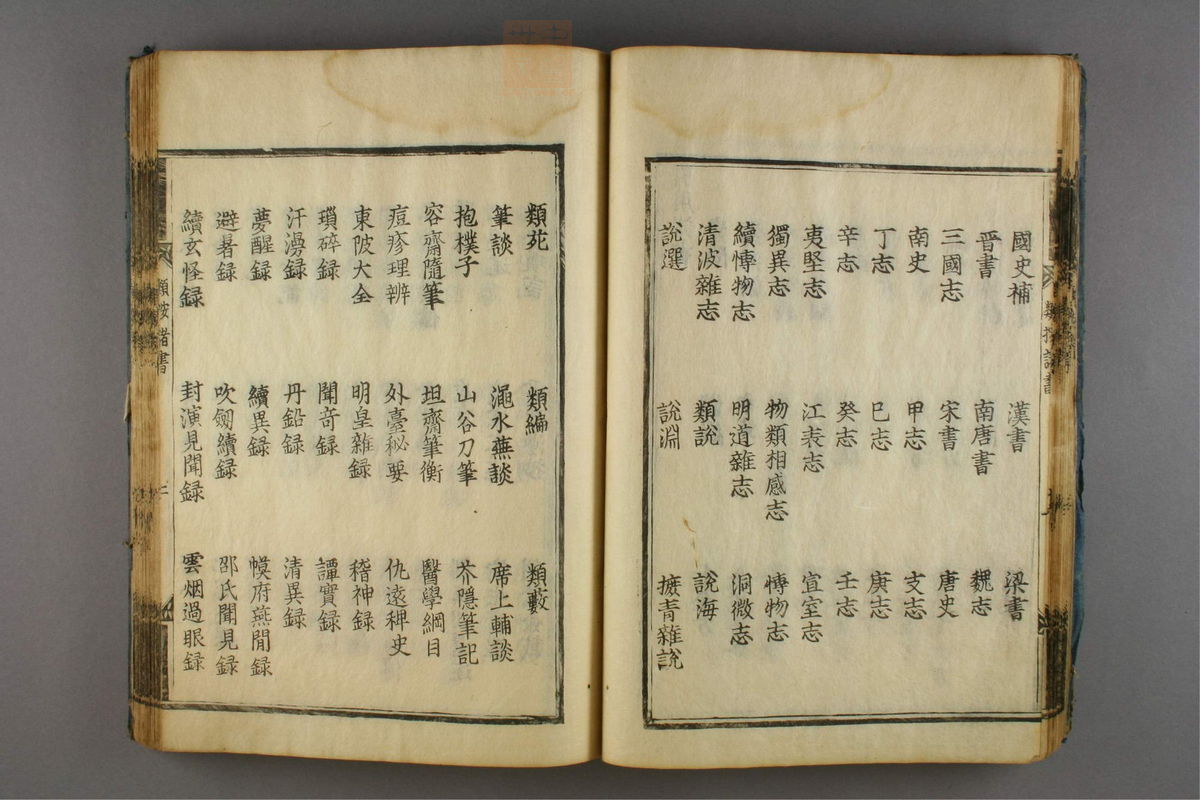 國史補 漢書 梁書
晉書 南唐書 魏志
三國志 宋書 唐史
南史 甲志 支志
丁志 巳志 庚志
辛志 癸志 壬志
夷堅志 江表志 宣室志
獨異志 物類相感志 愽物志
續愽物志 明道雜志 洞微志
清波雜志 類說 說海
說選 說淵 摭青雜說
類苑 類編 類藪
筆談 澠水燕談 席上輔談
抱樸子 山谷刀筆 芥隱筆記
容齋隨筆 坦齋筆衡 醫學綱目
痘疹理辨 外臺秘要 仇遠稗史
東陂大全 明皇雜録 稽神録
瑣碎録 聞竒録 譚實録
汗漫録 丹鉛録 清異録
夢醒録 續異録 幙府燕閒録
避暑録 吹劒續録 邵氏聞見録
續玄怪録 封演見聞録 雲烟過眼録
類按諸書 二